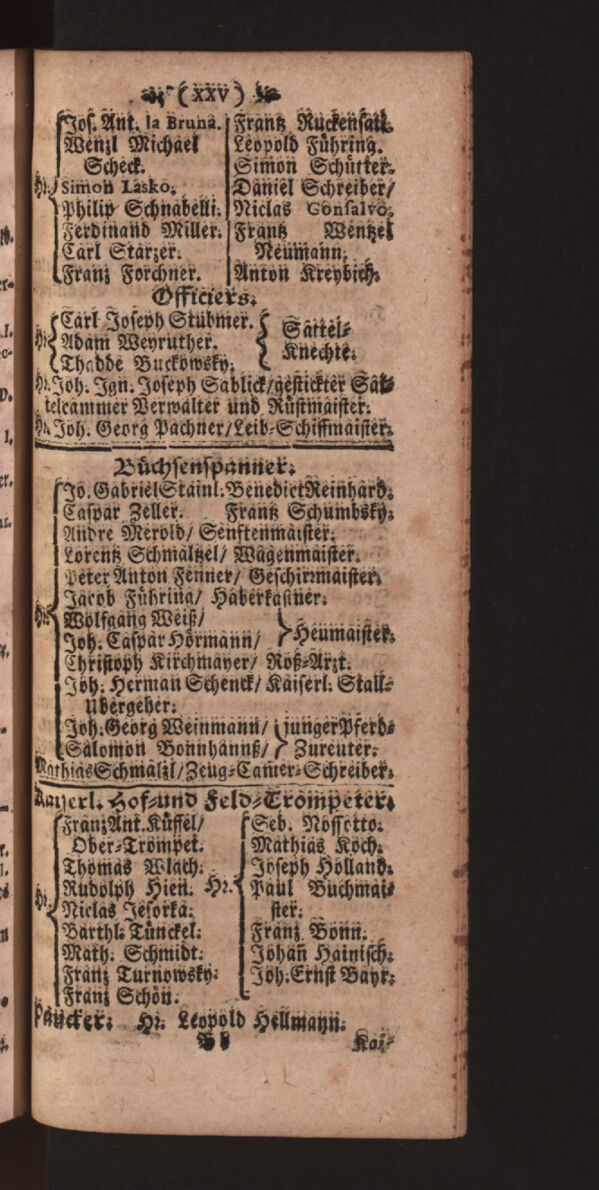 (XXV)
Jos. Ant. la Bruna.
Wenzl Michael
Scheck.
Hr. Simon Lasko.
Philip Schnabelli.
Ferdinand Miller.
Carl Starzer.
Franz Forchner.
Frantz Ruckensall.
Leopold Führing.
Simon Schütter.
Daniel Schreiber/
Niclas Gonsalvo.
Frantz Wentzel
Neumann.
Anton Kreybich.
Officiers.
Carl Joseph Stübmer.
Hr. Adam Weyruther.
Thadde Buckowsky.
Sattel-
Knechte.
Hr. Joh. Ign. Joseph Sablick/gestickter Sat-
telcammer Verwalter und Rüstmaister.
Hr. Joh. Georg Pachner/Leib-Schiffmaister.
Büchsenspanner.
Jo. Gabriel Stainl. Benedict Reinhard.
Caspar Zeller. Frantz Schumbsky.
Andre Merold/ Senftenmaister.
Lorentz Schmaltzel/ Wagenmaister.
Peter Anton Fenner/ Geschirrmaister.
Jacob Führing/ Haberkastner.
Hr. Wolfgang Weiß/
Joh. Caspar Hörmann/
Heumaister.
Christoph Kirchmayer/ Roß-Arzt.
Joh. Herman Schenck/ Kaiserl. Stall-
Ubergeher.
Joh. Georg Weinmann/ junger Pferd-
Salomon Bonnhannß/ Zureuter.
Mathias Schmalzl/Zeug-Camer-Schreiber.
Kayserl. Hof-und Feld-Trompeter.
Franz Ant. Küffel/
Ober-Trompet.
Thomas Wlach.
Rudolph Hien.
Hr. Niclas Jesorka.
Barthl. Tünckel.
Math. Schmidt.
Franz Turnowsky.
Franz Schön.
Seb. Nossotto.
Mathias Koch.
Joseph Holland.
Hr. Paul Buchmai-
ster.
Franz Bonn.
Johan̄ Hainisch.
Joh. Ernst Bayr.
Paucker. Hr. Leopold Hellmann.
Kai-